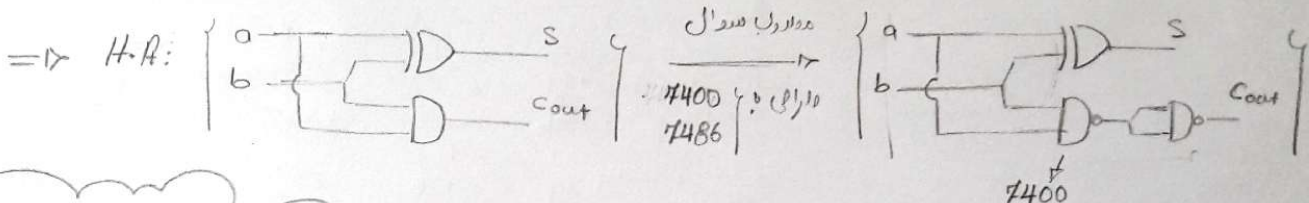 => H.A: a b S Cout
مدار سوال
7400
7486
a b S Cout
7400